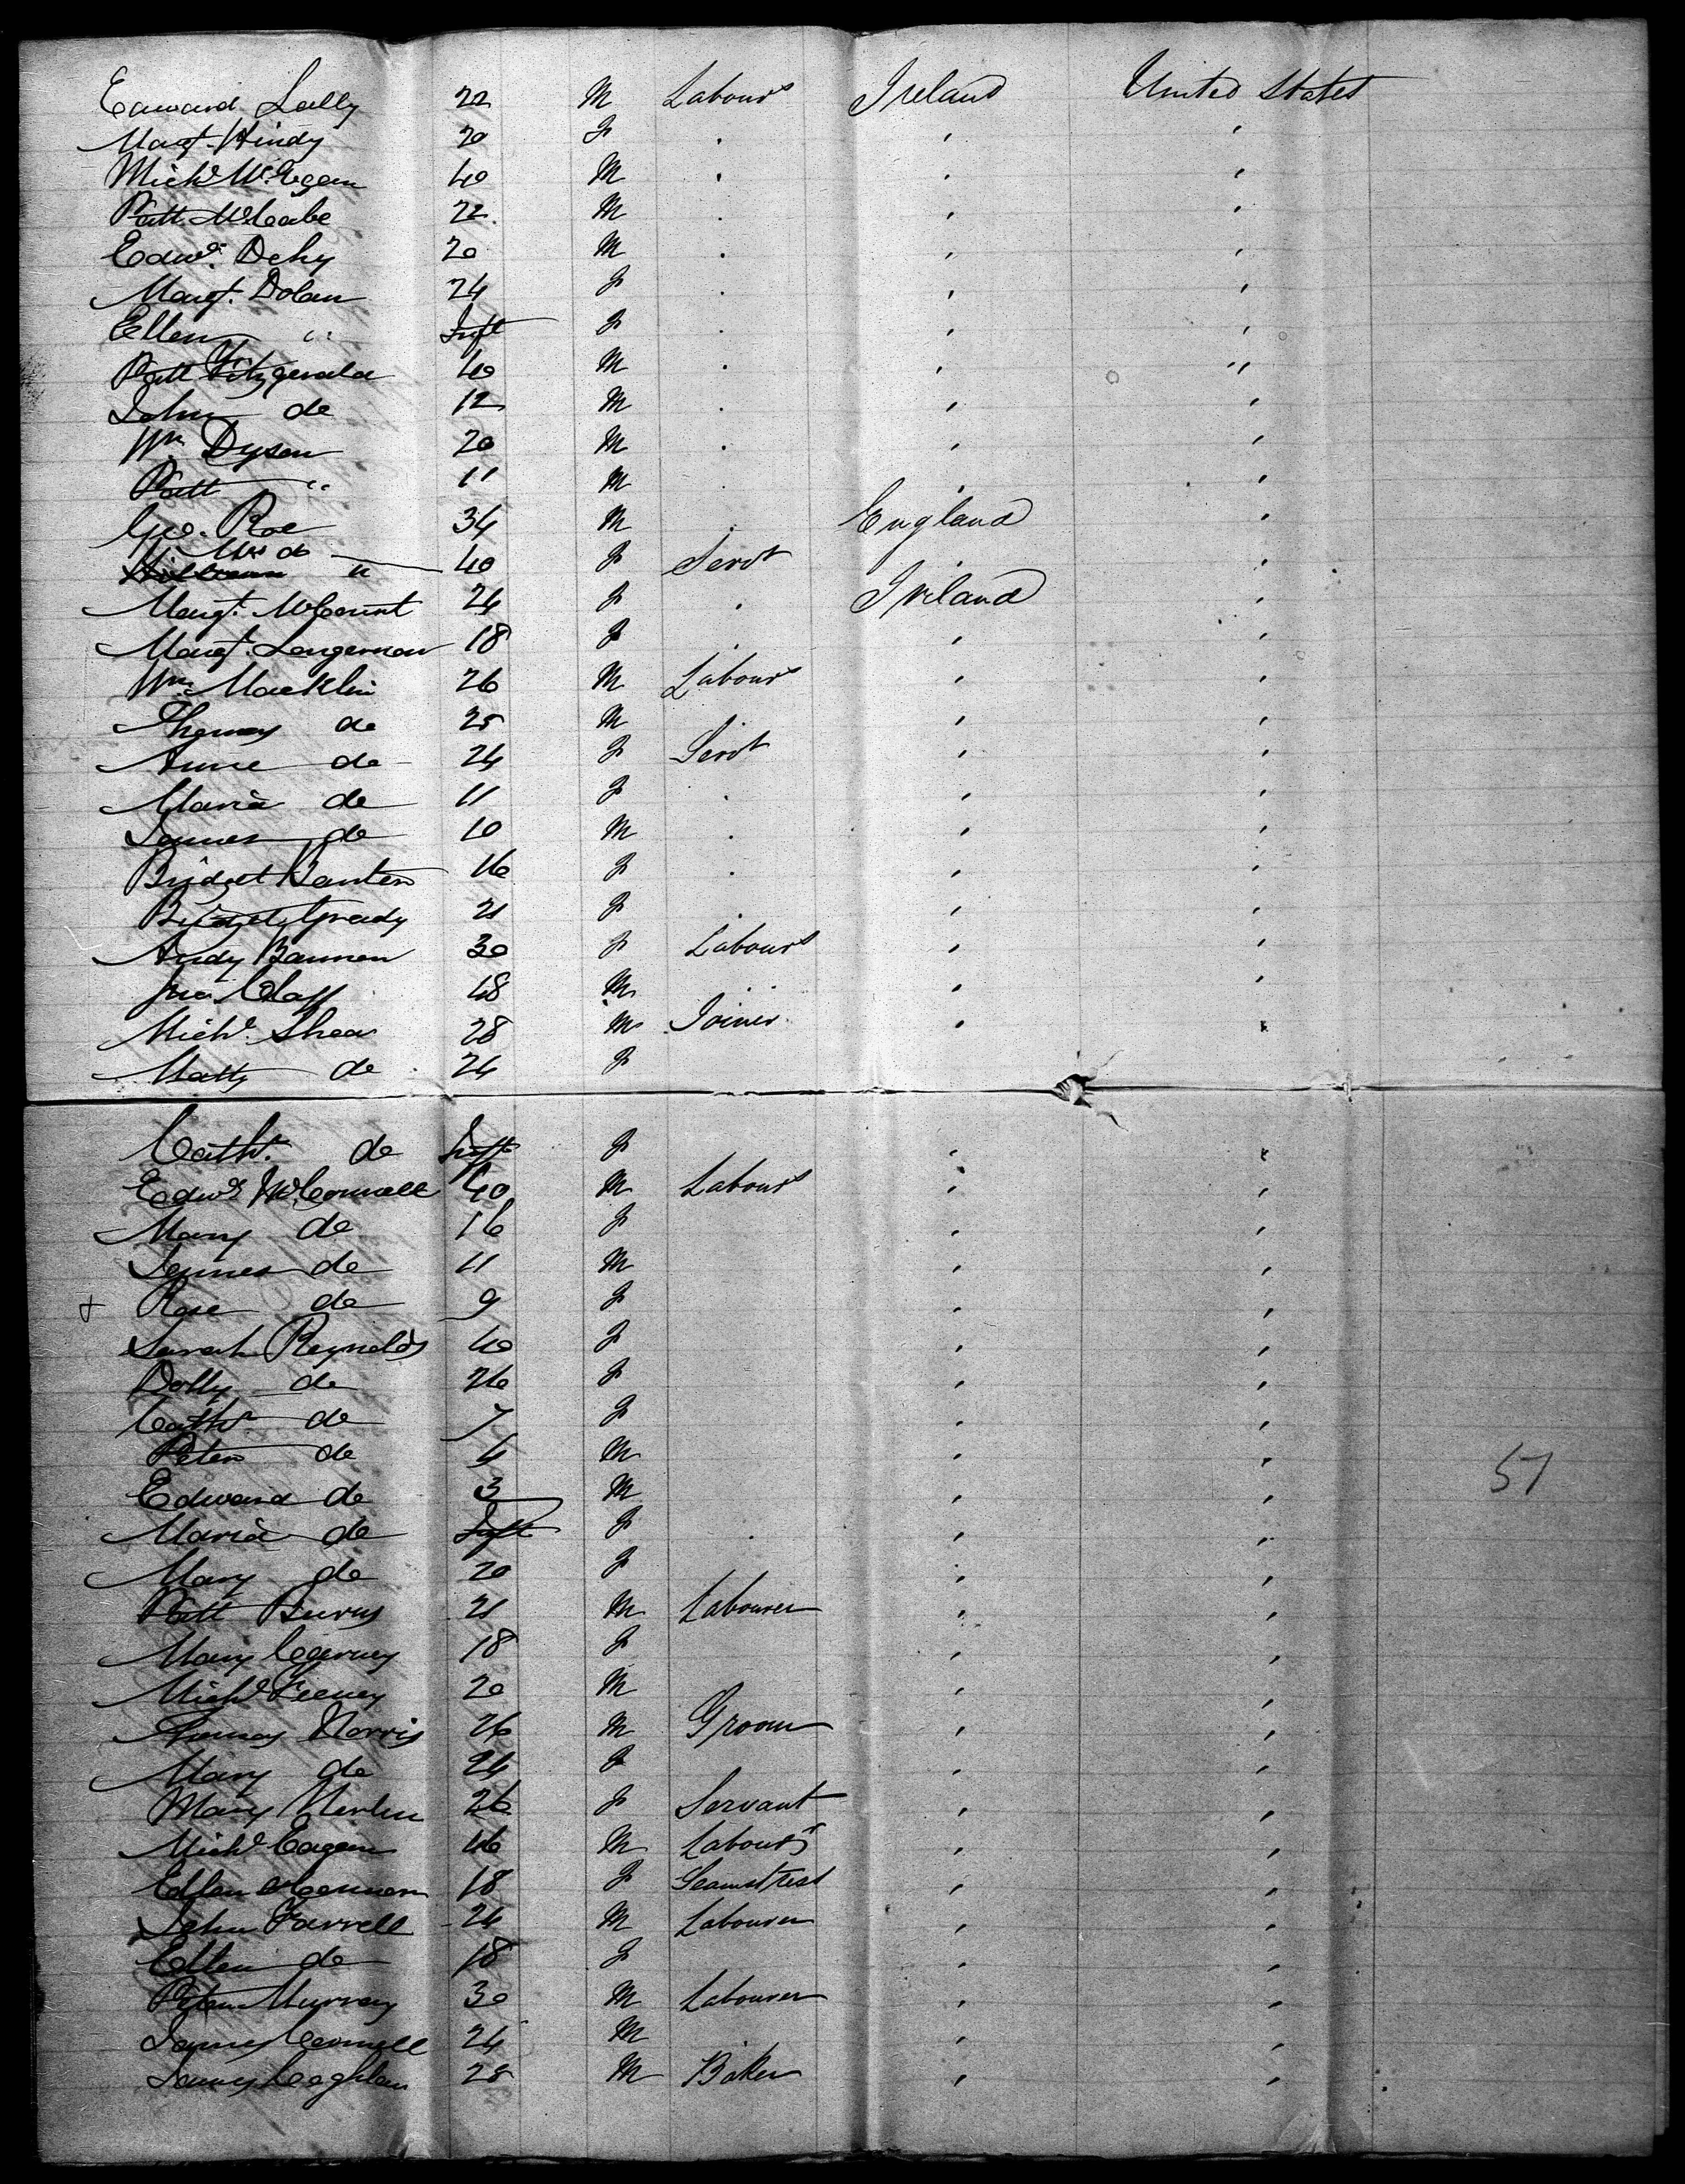 Edward Lally 22 M Labour Ireland United States
Margt. Hindy 20 F . , ,
Michl McEgan 40 M . , ,
Patt McCabe 22 M . , ,
Edwd. Dehy 20 M . , ,
Margt. Dolan 24 F . , ,
Ellen " Inft F . , ,
Patt Fitzgerald 40 M . , "
John do 12 M . , ,
Wm Dyson 20 M . , ,
Patt " 11 M . , ,
Geo. Roe 34 M . England ,
Mrs do " 40 F Servt , ,
Margt. McCourt 24 F . Ireland ,
Margt. 18 F . , ,
Wm Macklin 26 M Labour , ,
Thomas do 25 M , ,
Anne do 24 F Servt , ,
Maria do 11 F . , ,
James do 10 M . , ,
Bridget 16 F . , ,
Bridget Grady 21 F . , ,
Andy Bannon 30 F Labour , ,
Jno. 48 M . , ,
Michl Shea 28 M Joiner , ,
Matty do 24 F
Cathe. do Inft F , ,
Edwd McConnell 40 M Labour , ,
Mary do 16 F , ,
James do 11 M , ,
+ Rose do 9 F , ,
Sarah Reynolds 40 F , ,
Dolly do 26 F , ,
Cathe do 7 F , ,
Peter do 4 M , ,
57
Edward do 3 M , ,
Maria do Inft F . , ,
Mary do 20 F , ,
Patt Burns 21 M Labourer , ,
Mary 18 F , ,
Michl Feeney 20 M , ,
Thomas Norris 26 M Groom , ,
Mary do 24 F , ,
Mary 26 F Servant , ,
Michl Eagan 46 M Labour , ,
Ellen 18 F Seamstress , ,
John Farrell 24 M Labourer , ,
Ellen do 18 F , ,
Peter Murray 30 M Labourer , ,
James Connell 24 M , ,
James Coghlan 28 M Baker , ,